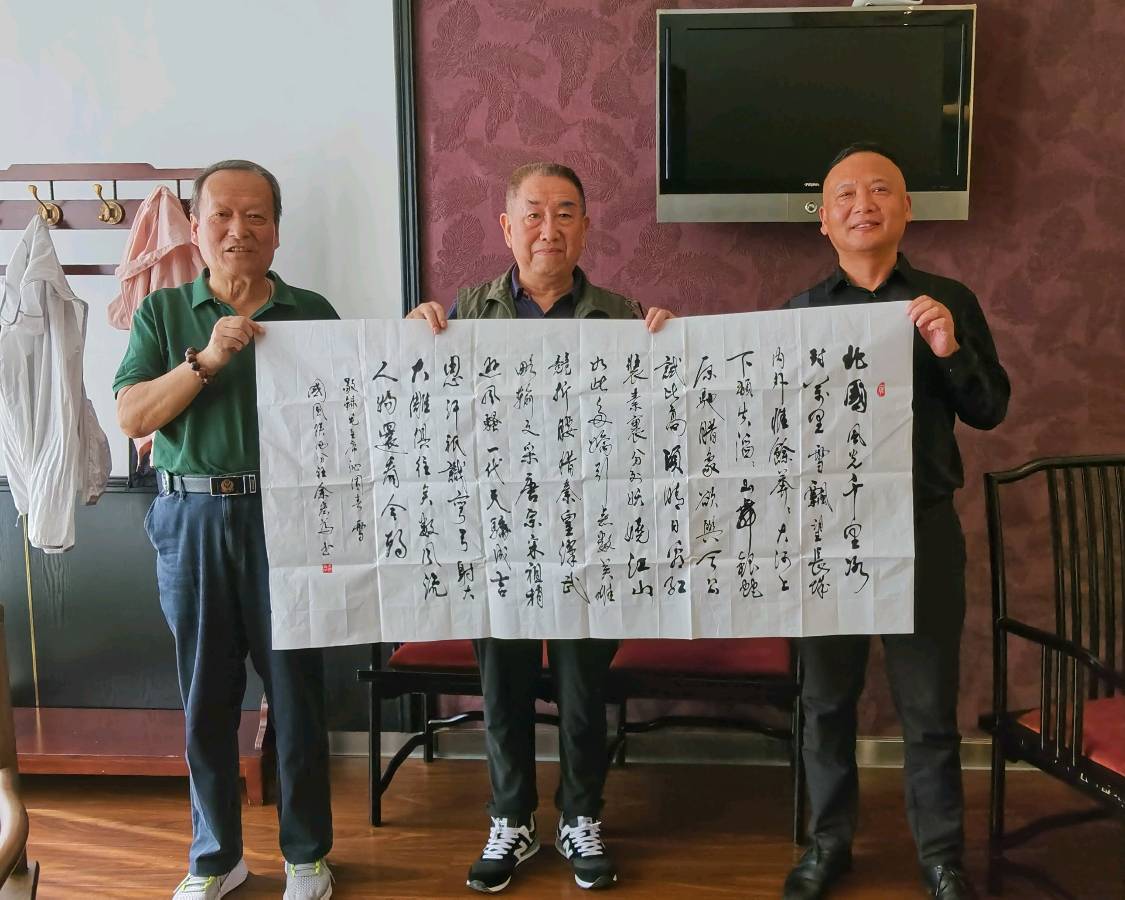 北國風光千里冰
封萬里雪飄望長城
內外惟餘莽〻大河上
下頓失滔〻山舞銀蛇
原馳臘象欲與天公
試比高須晴日看紅
裝素裹分外妖嬈江山
如此多嬌引无數英雄
競折腰惜秦皇漢武
略輸文采唐宗宋祖稍
遜風騷一代天驕成吉
思汗祇識彎弓射大
大雕俱往矣數風流
人物還看今朝
敬録毛主席沁園春雪
國風書